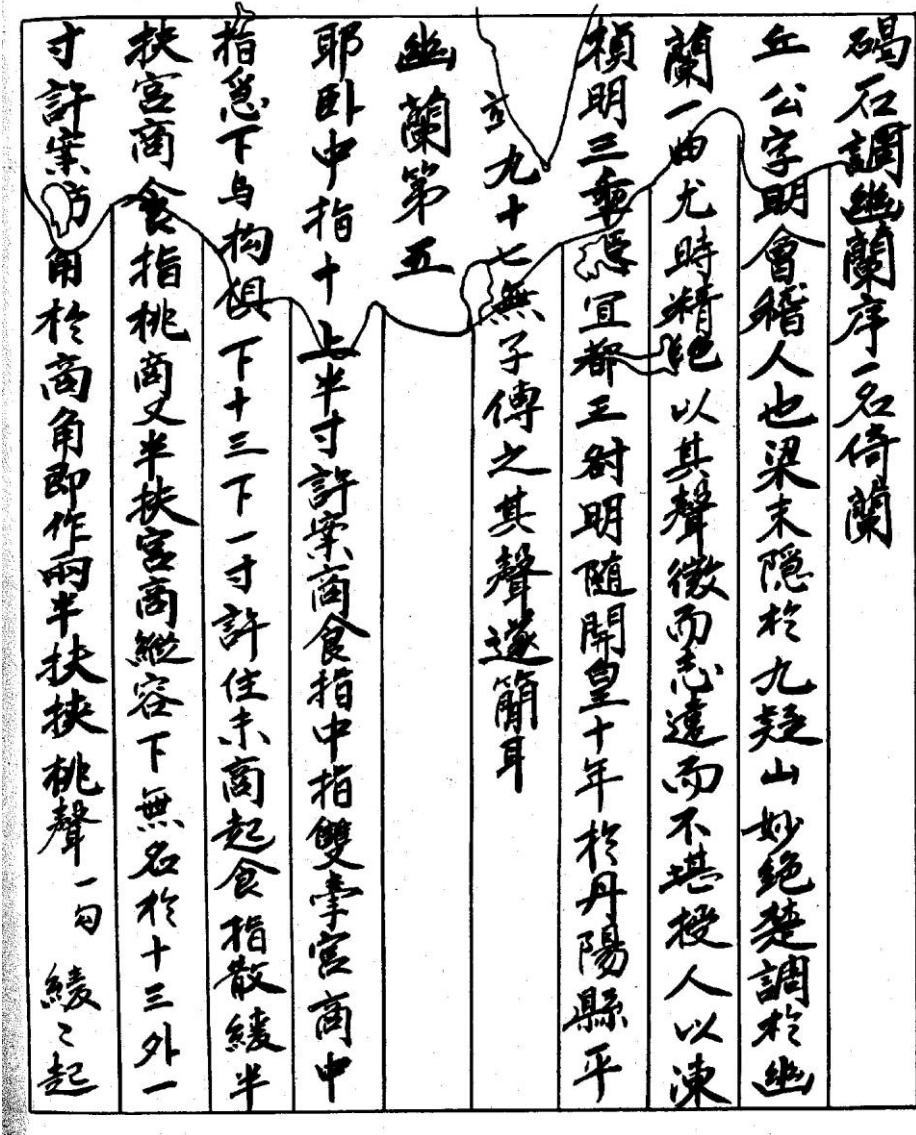 碣石調幽蘭序一名倚蘭
丘公字明會稽人也梁末隱於九疑山妙絕楚調於幽
蘭一曲尤時精絕以其聲微而志遠而不堪授人以陳
禎明三年授宜都王叔明随開皇十年於丹陽縣平
九十七無子傳之其聲遂簡耳
幽蘭第五
耶卧中指十上半寸許案商食指中指雙牽宮商中
指急下与构俱下十三下一寸許住末商起食指散緩半
扶宮商食指挑商又半扶宮商縱容下無名於十三外一
寸許案角於商角即作兩半扶挾挑聲一句緩〻起